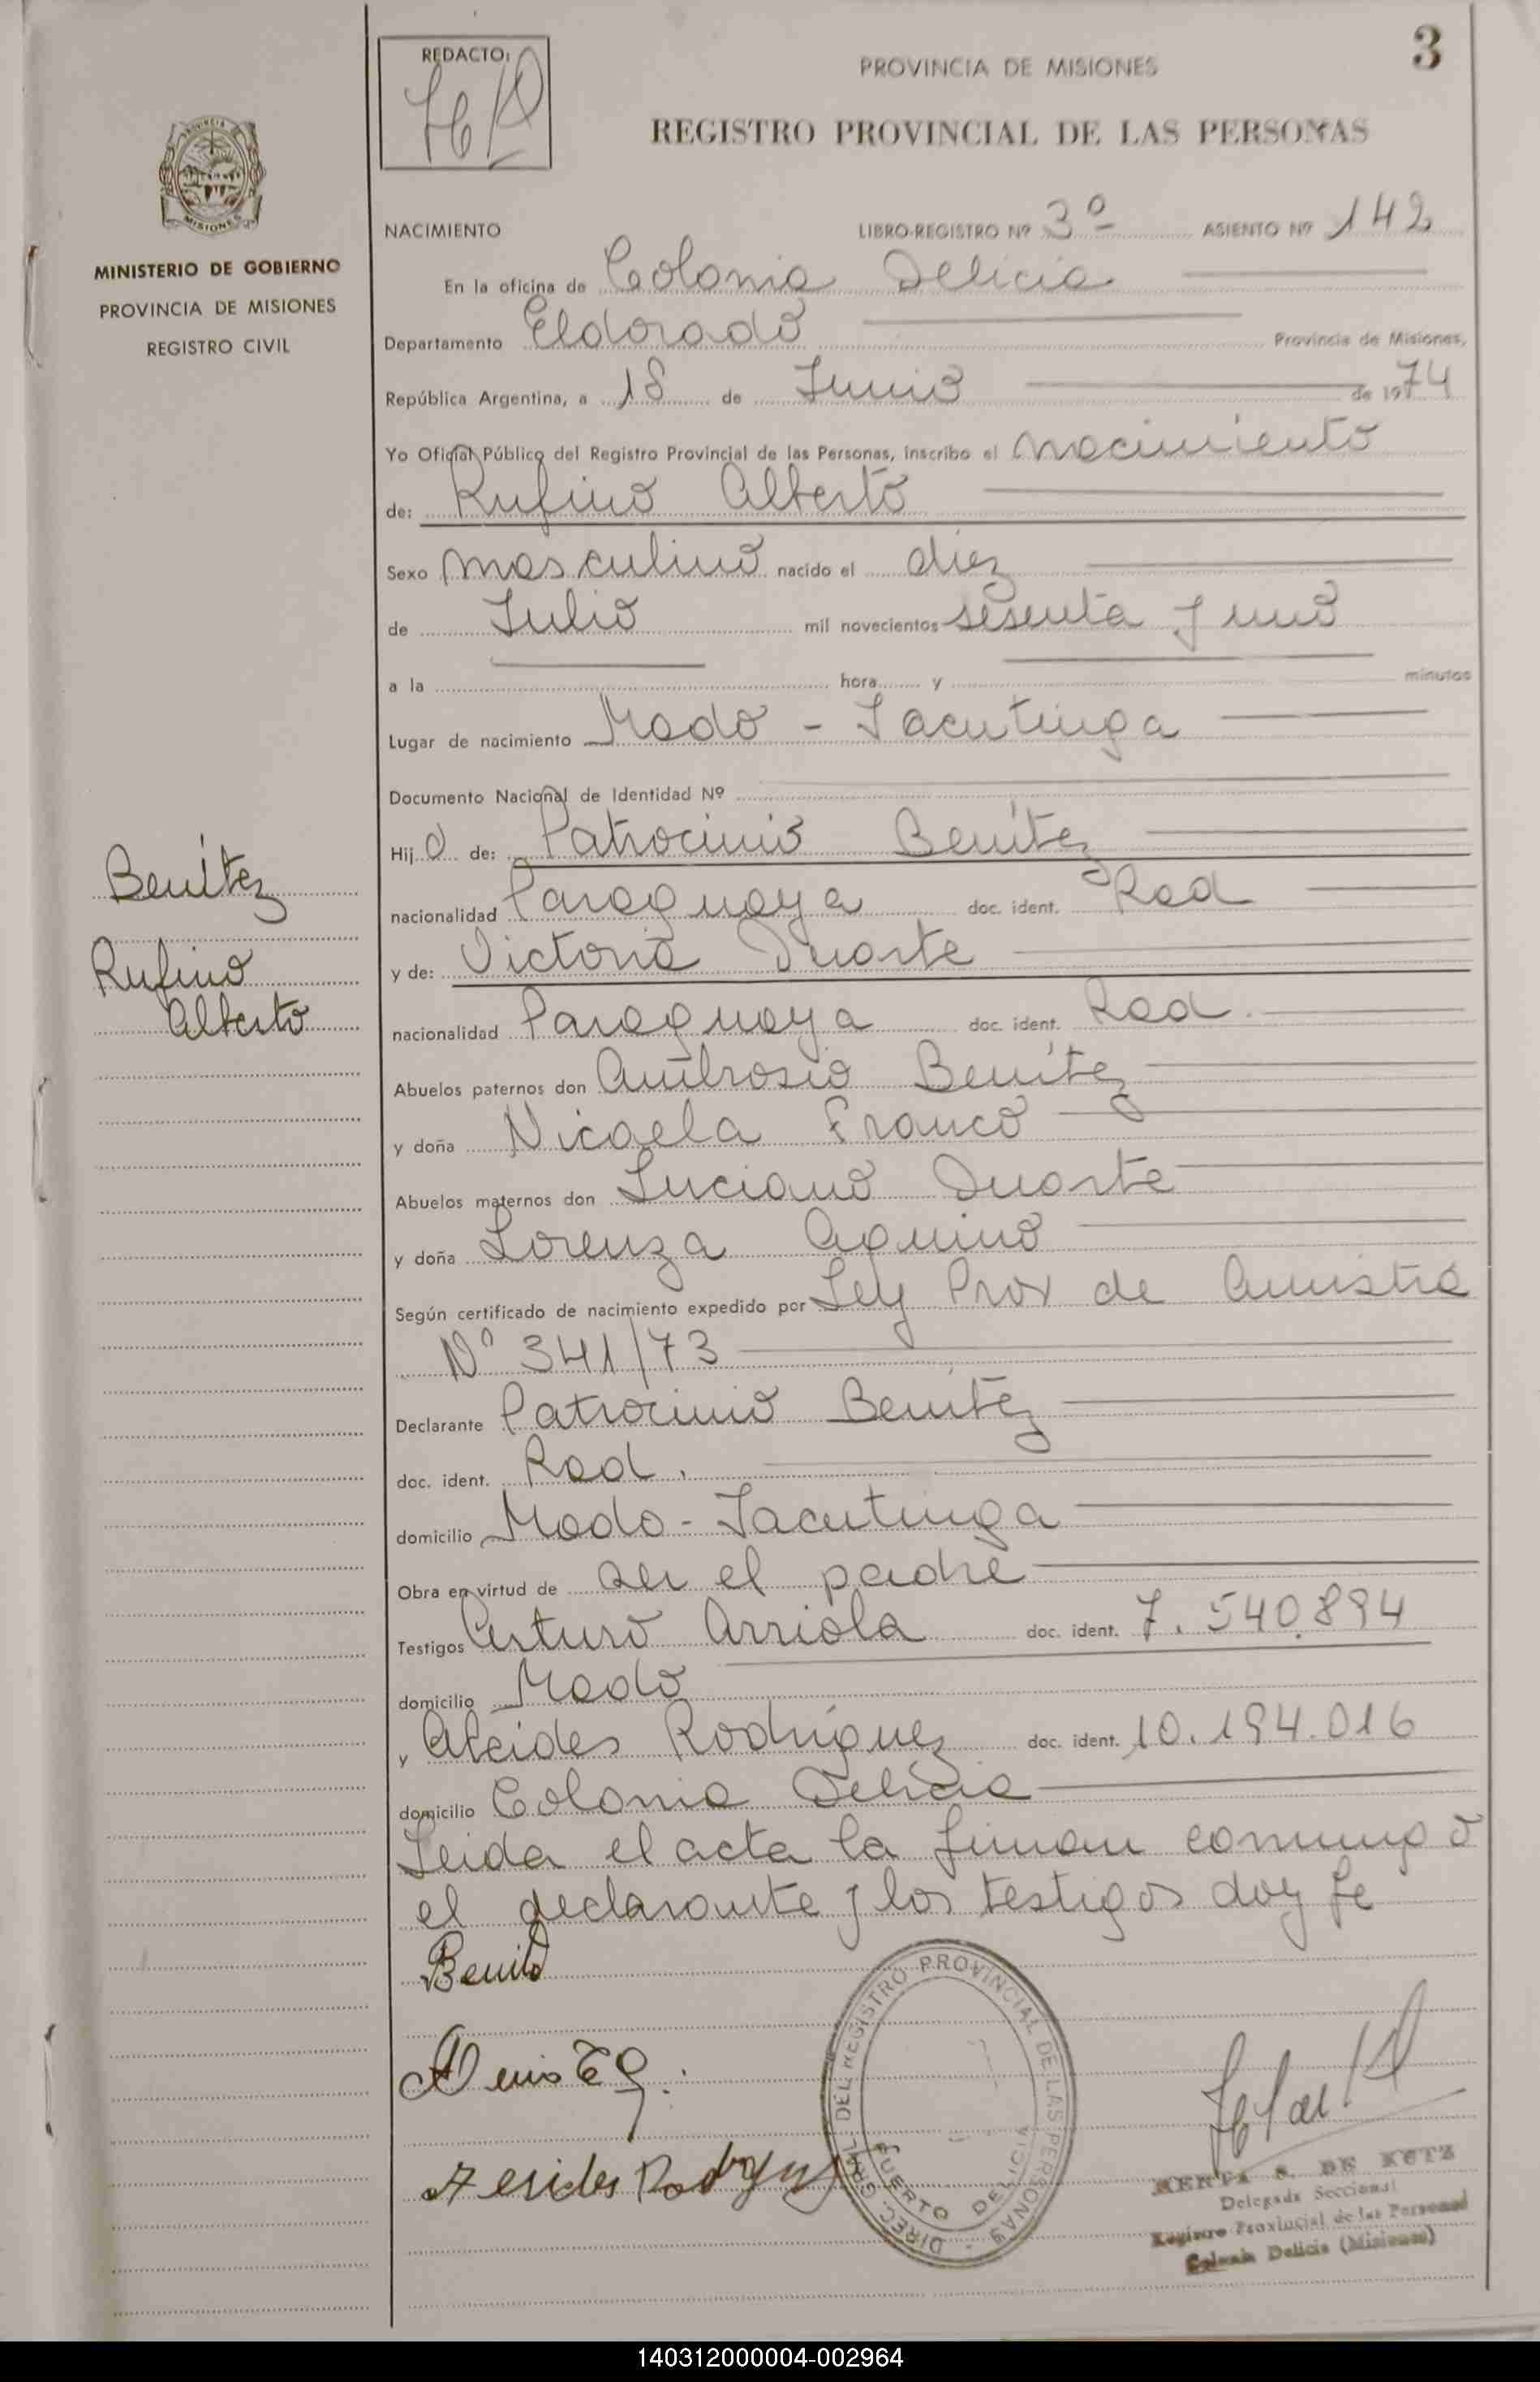 3
REDACTO:
PROVINCIA DE MISIONES
REGISTRO PROVINCIAL DE LAS PERSONAS
PROVINCIA DE
MISIONES
MINISTERIO DE GOBIERNO
PROVINCIA DE MISIONES
REGISTRO CIVIL
NACIMIENTO LIBRO-REGISTRO Nº 3º ASIENTO Nº 142
En la oficina de Colonia Delicia
Departamento Eldorado Provincia de Misiones,
República Argentina, a 18 de Junio de 1974
Yo Oficial Público del Registro Provincial de las Personas, inscribo el nacimiento
de: Rufino Alberto
Sexo masculino nacido el diez
de Julio mil novecientos sesenta y uno
a la hora y minutos
Lugar de nacimiento Mado - Yacutinga
Documento Nacional de Identidad Nº
Hijo de: Patrocinio Benítez
nacionalidad Paraguaya doc. ident. Rad
y de: Victoria Duarte
nacionalidad Paraguaya doc. ident. Rad.
Abuelos paternos don Ambrosio Benítez
y doña Nicaela Franco
Abuelos maternos don Luciano Duarte
y doña Lorenza Aquino
Según certificado de nacimiento expedido por Ley Prov de Amistia
Nº 341/73
Declarante Patrocinio Benítez
doc. ident. Rad.
domicilio Mado - Yacutinga
Obra en virtud de ser el padre
Testigos Arturo Arriola doc. ident. 7.540.894
domicilio Mado
y Alcides Rodríguez doc. ident. 10.194.016
domicilio Colonia Delicia
Leida el acta la firman conmigo
el declarante y los testigos doy fe
Benítez
Rufino
Alberto
DIREC. GRAL. DEL REGISTRO PROVINCIAL DE LAS PERSONAS
PUERTO DELICIA
S. DE KUTZ
Delegada Seccional
Registro Provincial de las Personas
Colonia Delicia (Misiones)
140312000004-002964